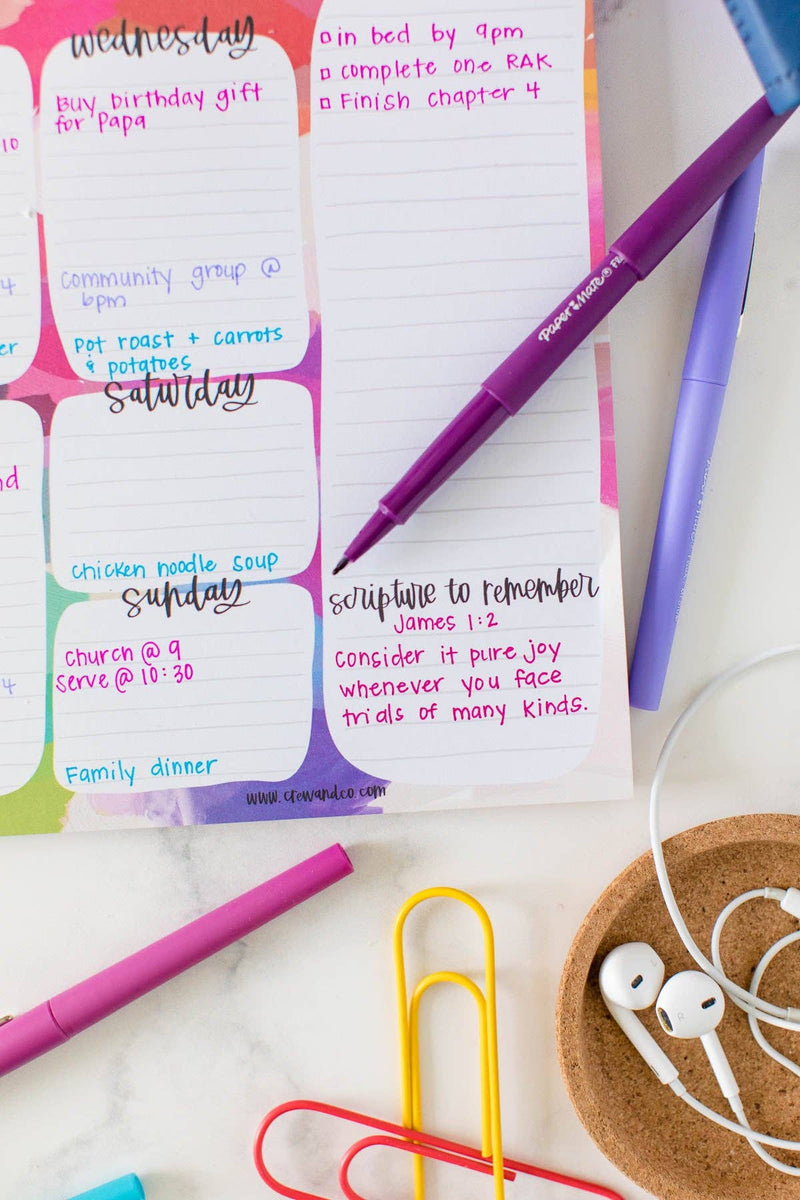 wednesday
Buy birthday gift
for Papa
Community group @
6pm
Pot roast + carrots
& potatoes
saturday
chicken noodle soup
sunday
Church @ 9
Serve @ 10:30
Family dinner
in bed by 9pm
complete one RAK
Finish chapter 4
scripture to remember
James 1:2
Consider it pure joy
whenever you face
trials of many kinds.
www.crewandco.com
Paper Mate®
10
4
er
nd
4
R